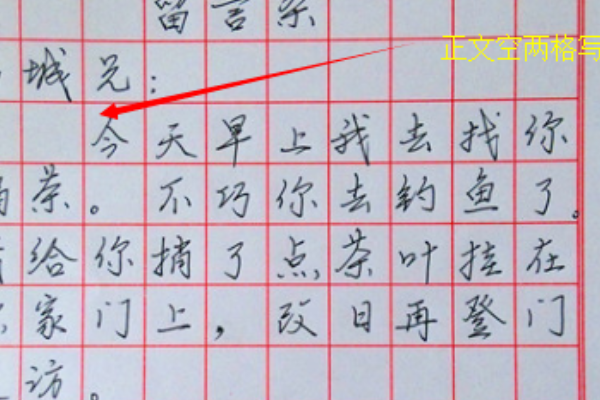 留言条
城兄：
正文空两格写
今天早上我去找你
茶。不巧你去钓鱼了。
给你捎了点茶叶挂在
家门上，改日再登门
访。